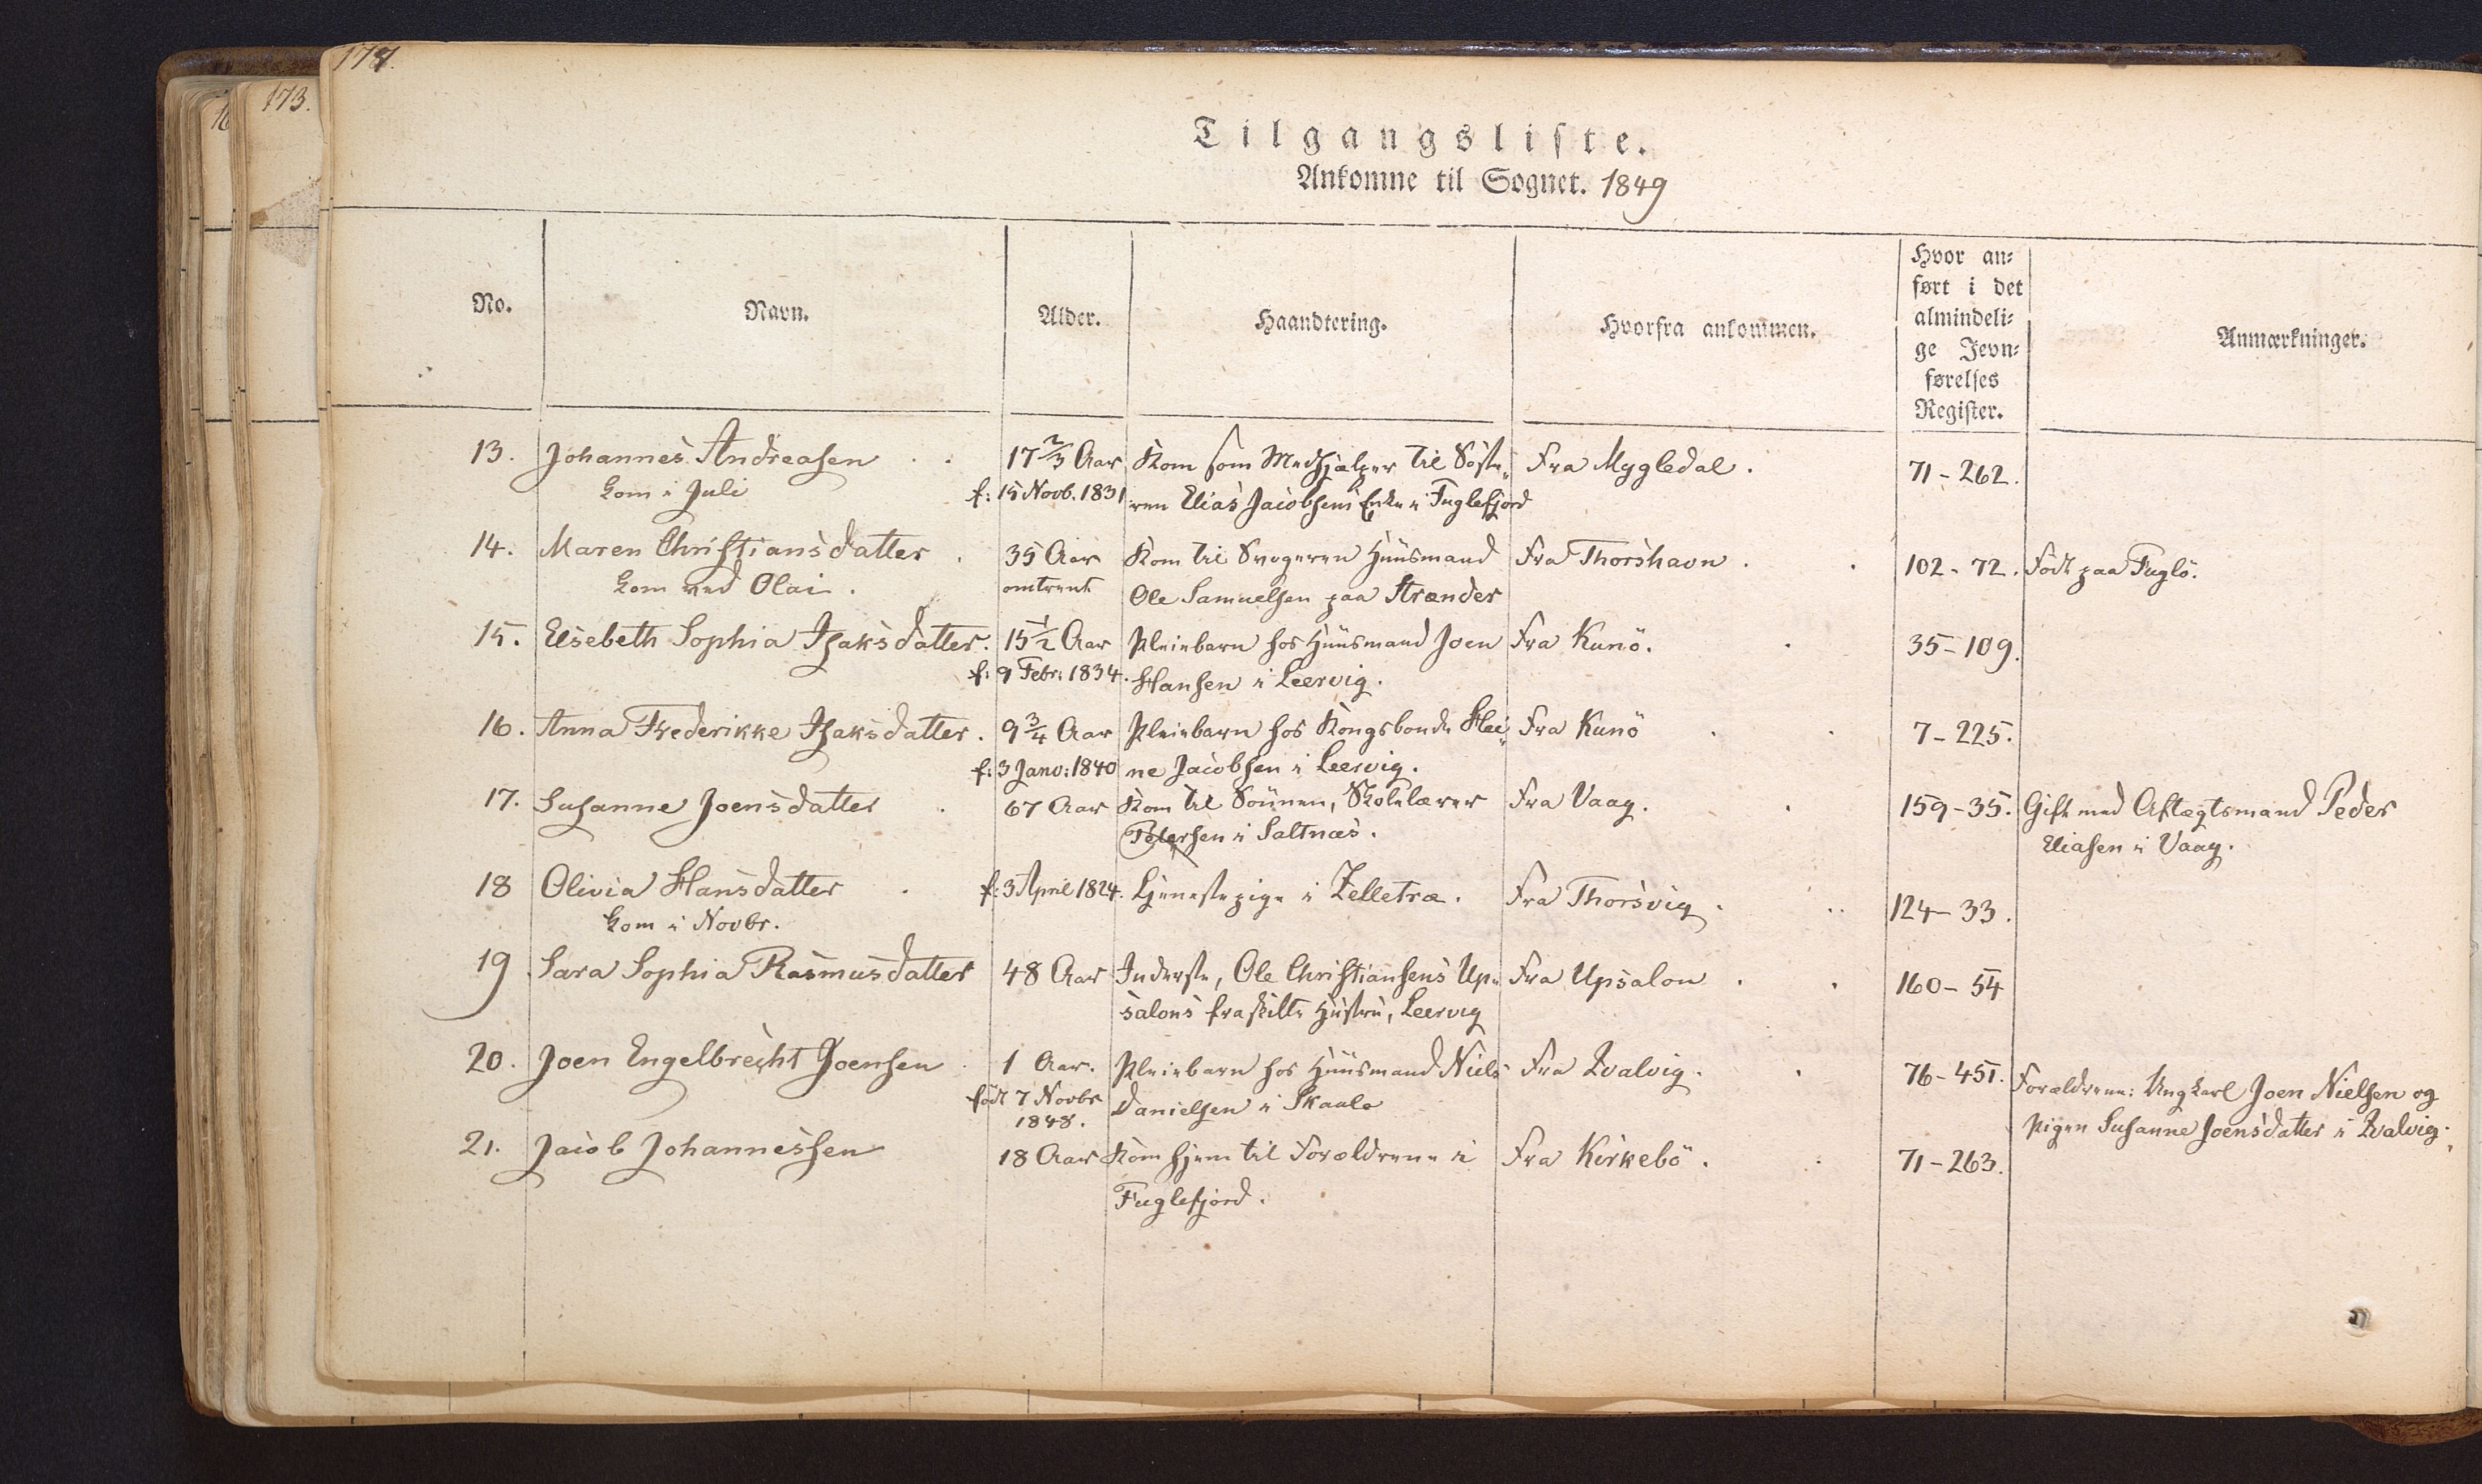 177.
173.
Tilgangsliste.
Ankomne til Sognet. 1849
No.
Navn.
Alder.
Haandtering.
Hvorfra ankommen.
Hvor an-
ført i det
almindeli-
ge Jevn-
førelses
Register.
Anmærkninger.
13. Johannes Andreasen 17 2/3 Aar Kom som Medhjælper til Søste- Fra Mygledal. 71-262.
kom i Juli f: 15 Novb. 1831 ren Elias Jacobsens Enke i Fuglefjord
14. Maren Christiansdatter 35 Aar Kom til Svogeren Huusmand Fra Thorshavn. 102-72. Født paa Fuglö.
kom ved Olai. omtrent Ole Samuelsen paa Strænder
15. Elsebeth Sophia Isaksdatter. 15 1/2 Aar Pleiebarn hos Huusmand Joen Fra Kunö. 35-109.
f: 9 Febr: 1834. Hansen i Leervig.
16. Anna Frederikke Isaksdatter. 9 3/4 Aar Pleiebarn hos Kongsbonde Hei- Fra Kunö 7-225.
f: 3 Janv: 1840 ne Jacobsen i Leervig.
17. Susanne Joensdatter 67 Aar Kom til Sönnen, Skolelærer Fra Vaag. 159-35. Gift med Aftægtsmand Peder
Petersen i Saltnæs. Eliasen i Vaag.
18 Olivia Hansdatter f: 3 April 1824. Tjenestepige i Zelletræ. Fra Thorsvig. 124-33.
kom i Novbr.
19 Sara Sophia Rasmusdatter 48 Aar Inderste, Ole Christiansens Up- Fra Upsalon 160-54
salons fraskilte Hustru, Leervig
20. Joen Engelbrecht Joensen 1 Aar. Pleiebarn hos Huusmand Niels Fra Qvalvig. 76-451. Forældrene: Ungkarl Joen Nielsen og
födt 7 Novbr Danielsen i Skaale Pigen Susanne Joensdatter i Qvalvig.
1848.
21. Jacob Johannessen 18 Aar Kom hjem til Forældrene i Fra Kirkebö. 71-263.
Fuglefjord.